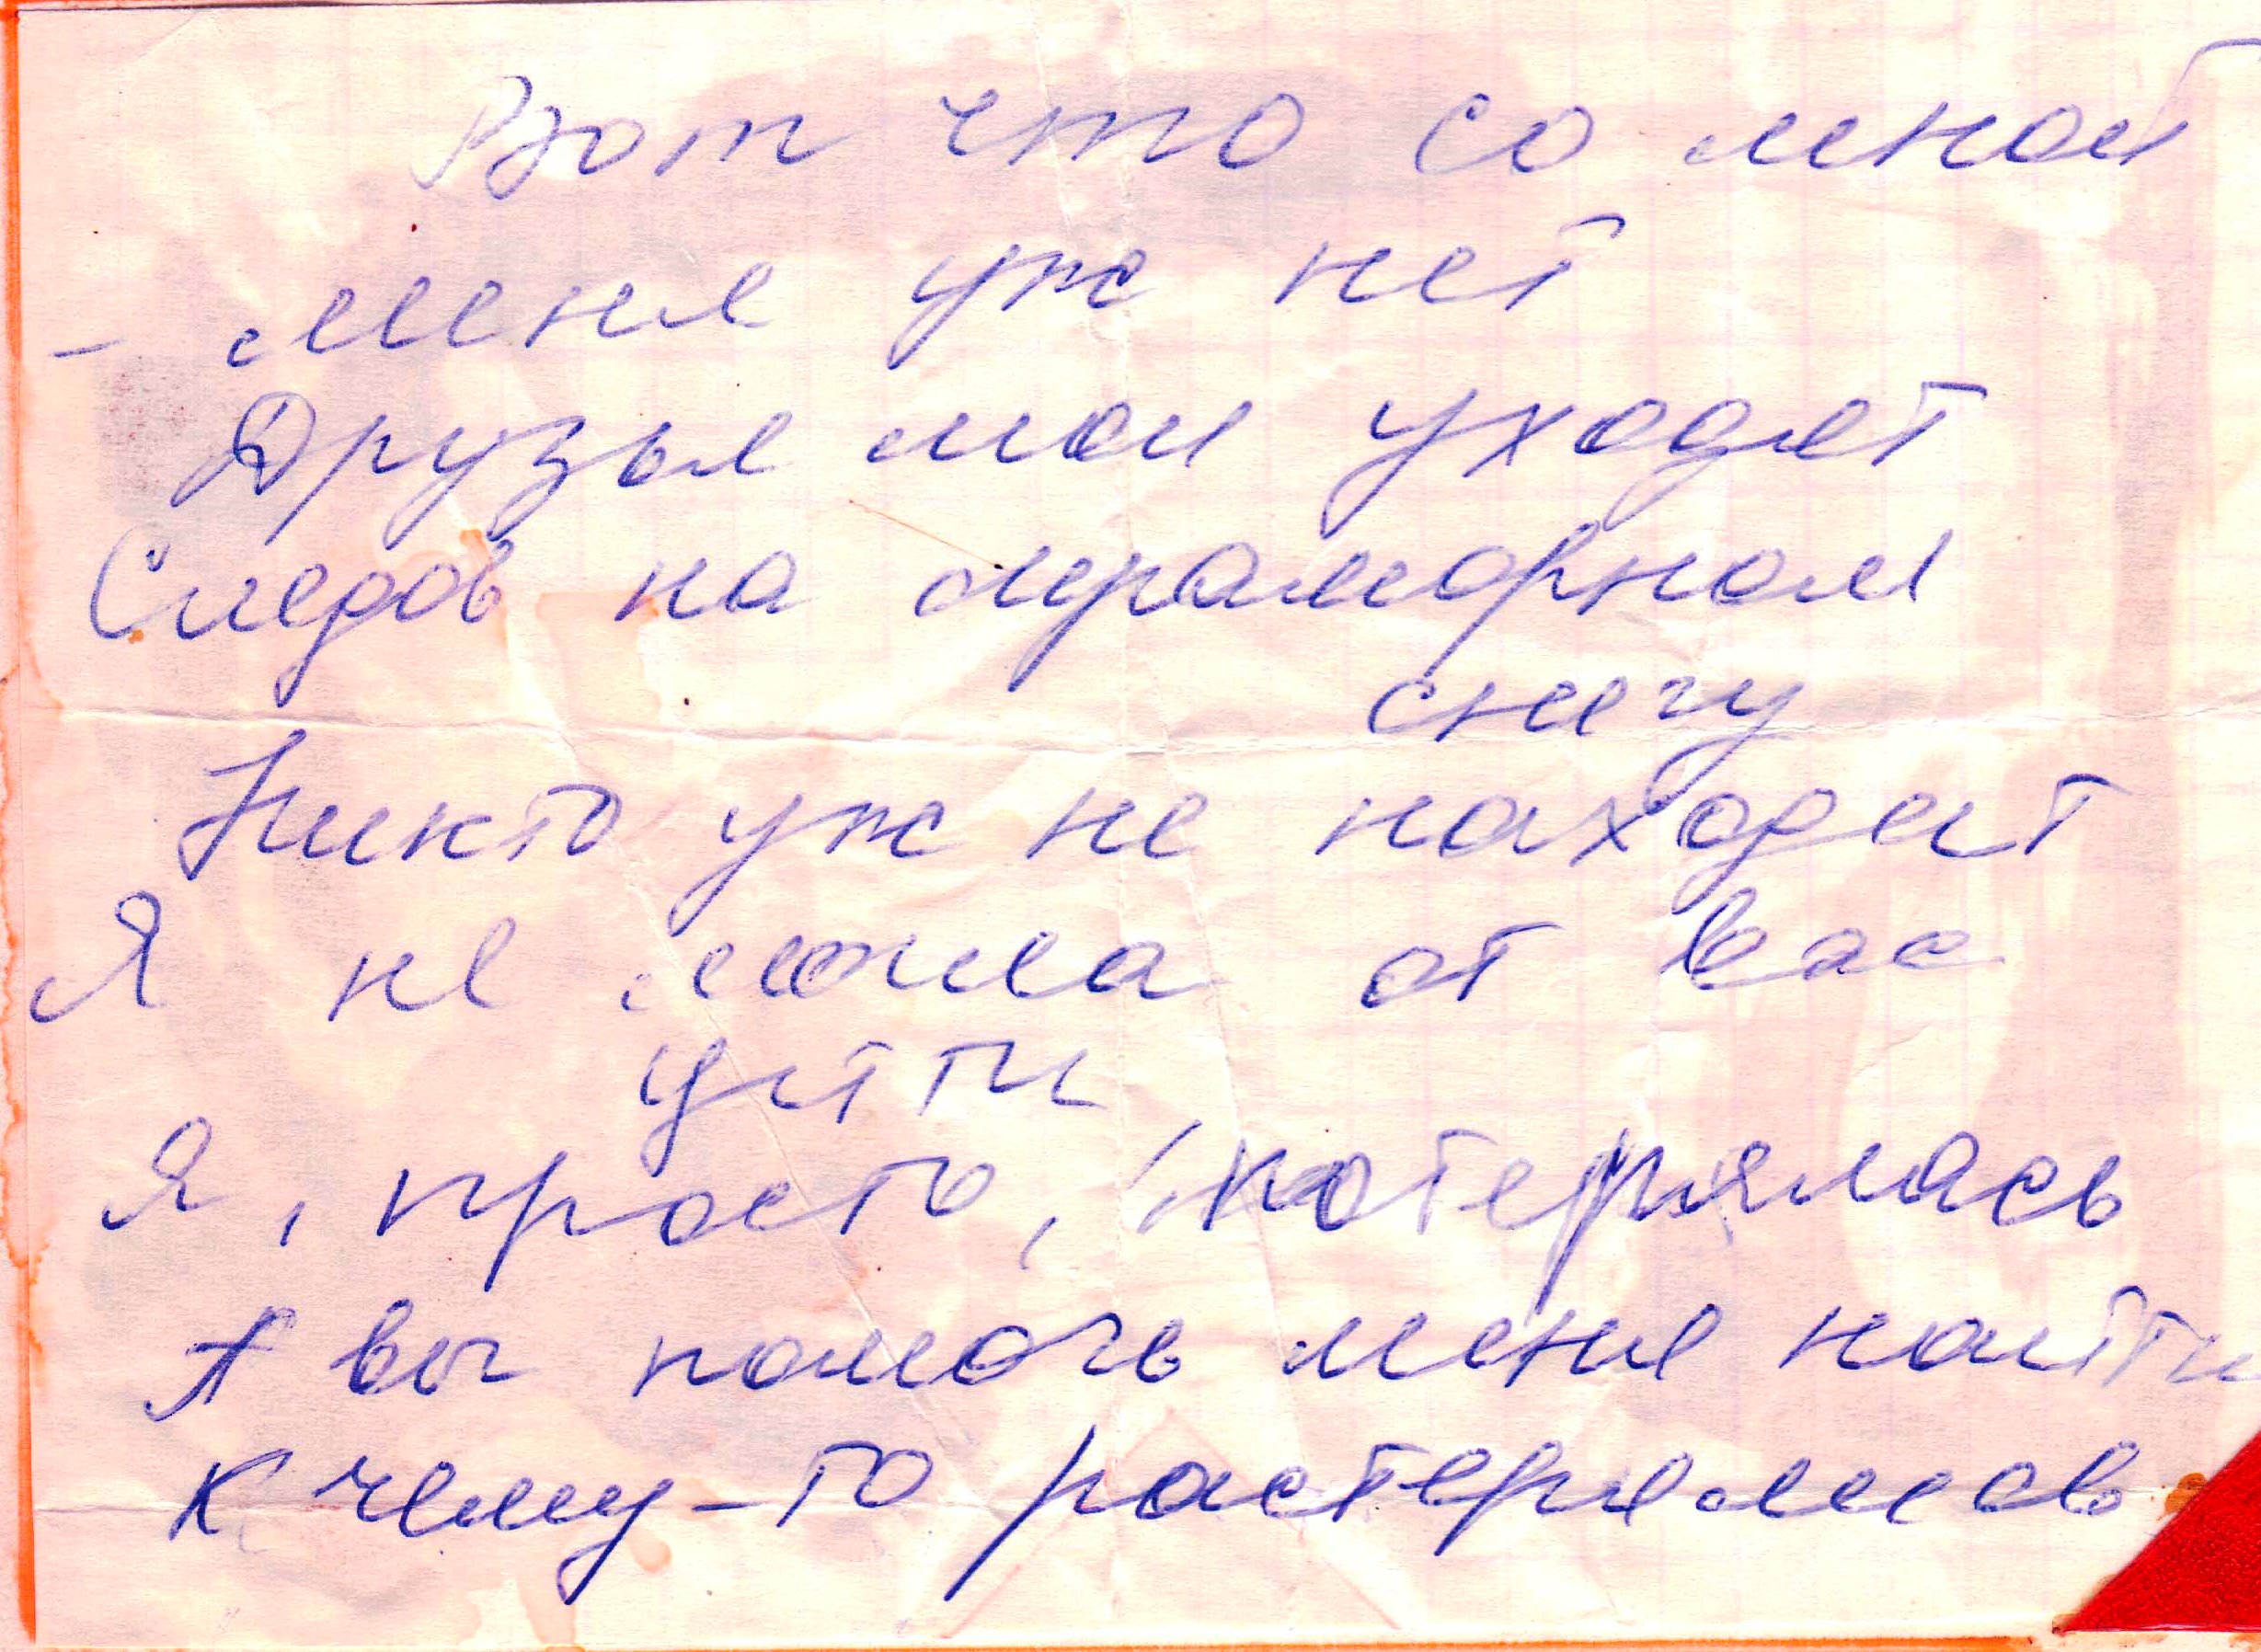 Вот что со мной
- меня уж нет
Друзья мои уходят
Следов на мраморном
снегу
Никто уж не находит
Я не могла от вас
уйти
Я, просто, потерялась
А вы помочь меня найти
К чему-то растерялись